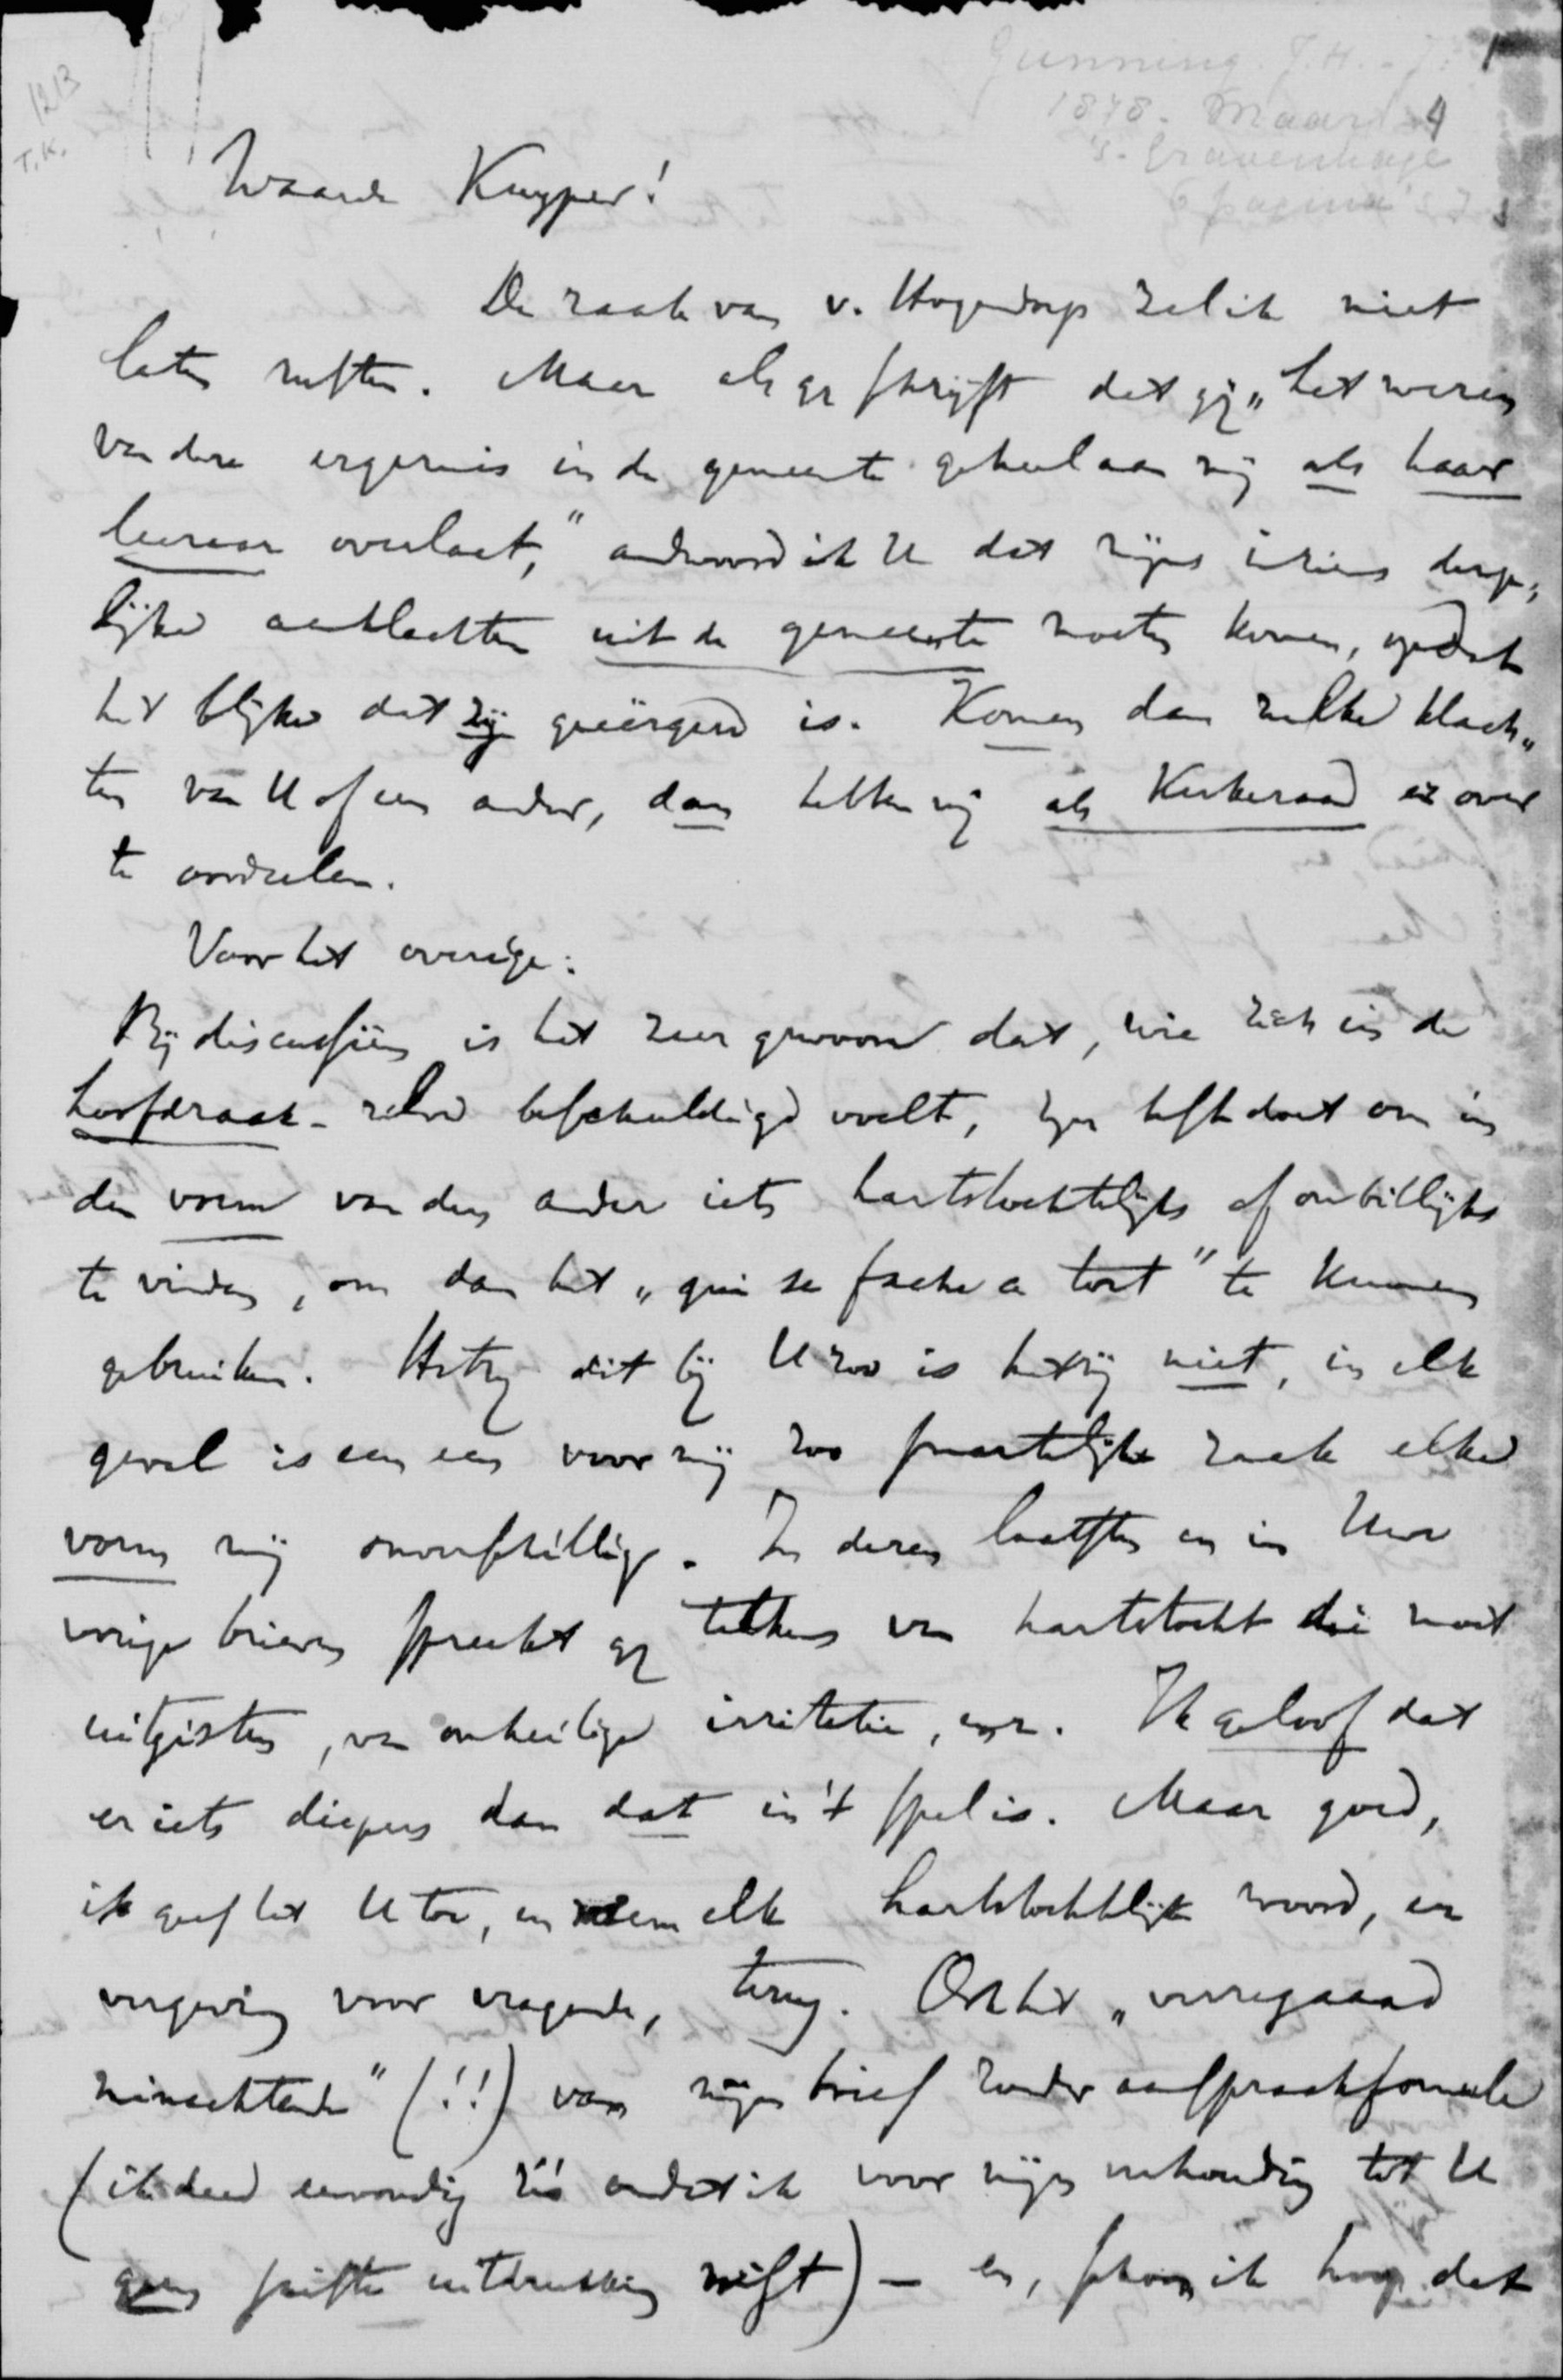 Gunning. J.H. - J:
1878. Maart 4
's-Gravenhage
6 pagina's
1213
T.K.
Waarde Kuyper!
De zaak van v. Hogendorp zal ik niet
laten rusten. Maar als gij schrijft dat gij „het weren
van deze ergernis in de gemeente geheel aan mij als haar
leeraar overlaat," antwoord ik U dat mijns inziens derge-
lijke aanklachten uit de gemeente moeten komen, opdat
het blijke dat zij geërgerd is. Komen dan zulke klach-
ten van U of een ander, dan hebben wij als Kerkeraad er over
te oordeelen.
Voor het overige:
Bij discussiën is het zeer gewoon dat, wie zich in de
hoofdzaak zelve beschuldigd voelt, zijn best doet om in
den vorm van den ander iets hartstochtelijks of onbillijks
te vinden, om dan het „qui se fache a tort" te kunnen
gebruiken. Hetzij dit bij U zoo is hetzij niet, in elk
geval is in een voor mij zoo smartelijke zaak elke
vorm mij onverschillig. In dezen laatsten en in Uw
vorige brieven spreekt gij telkens van hartstocht die moet
uitgisten, van onheilige irritatie, enz. Ik geloof dat
er iets diepers dan dat in 't spel is. Maar goed,
ik geef het U toe, en neem elk hartstochtelijk woord, en
vergeving voor vragende, terug. Ook het „verregaand
minachtende" (!!) van mijn brief zonder aanspraakformule
(ik deed eenvoudig zóó omdat ik voor mijn verhouding tot U
geen juiste uitdrukking wist) — en, schoon ik hoop dat